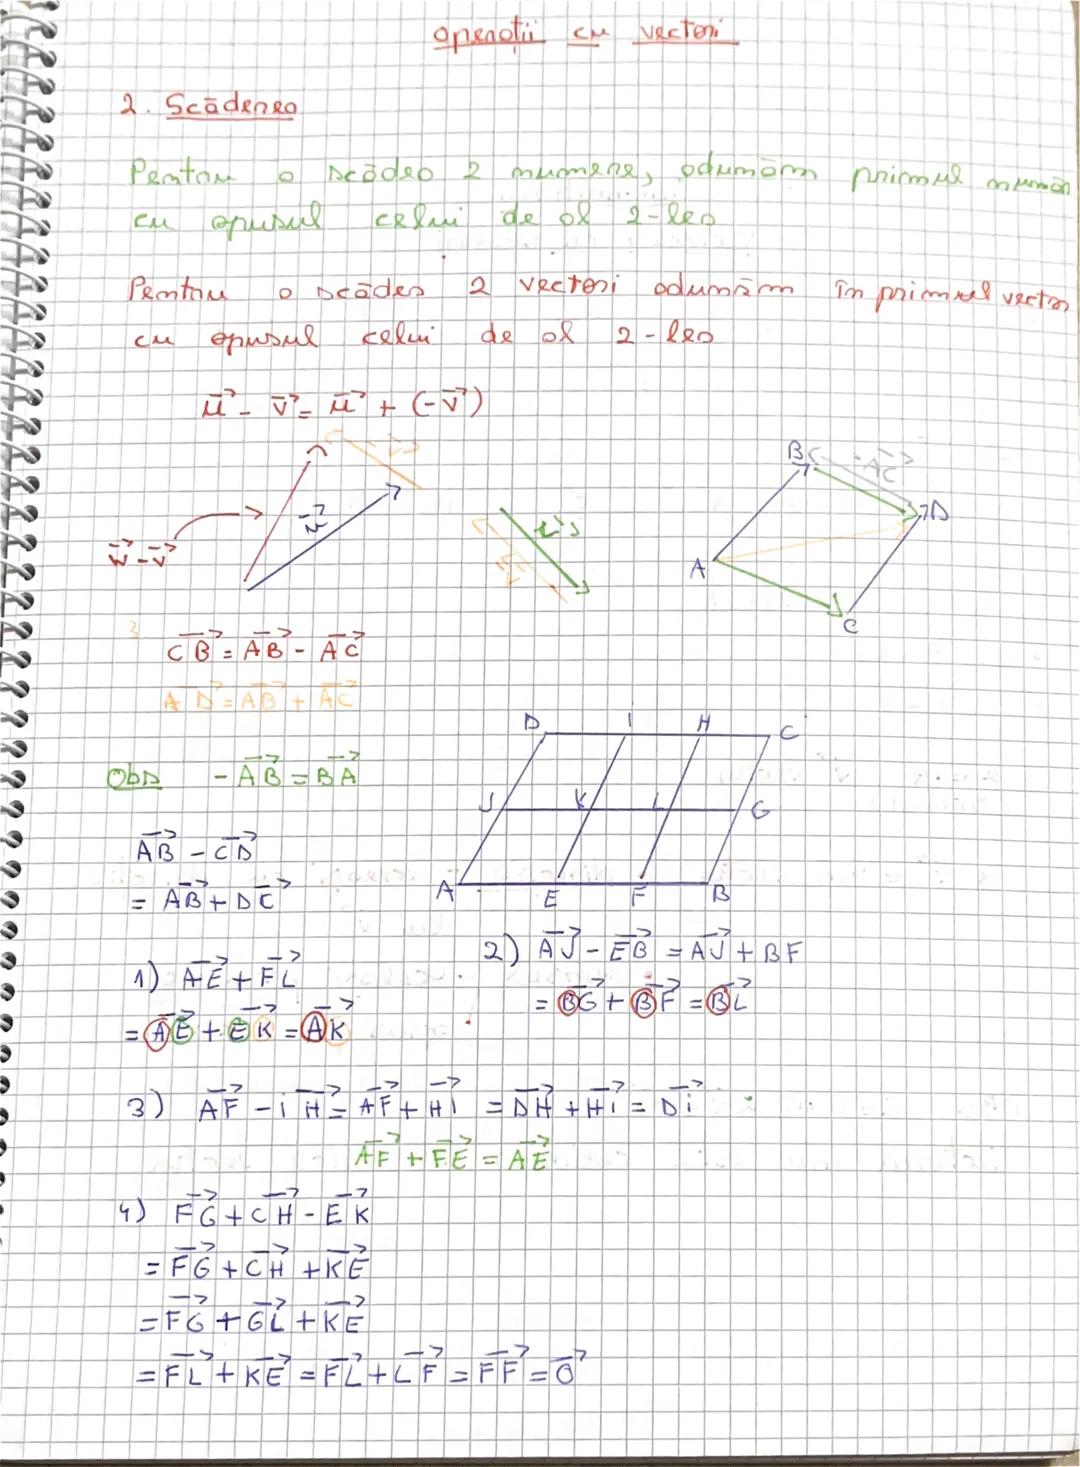 operații cu vectori
2. Scăderea
Pentru a scădea 2 numere, adunăm primul număr
cu opusul celui de al 2-lea
Pentru a scădea 2 vectori adunăm în primul vector
cu opusul celui de al 2-lea
u⃗ - v⃗ = u⃗ + (-v⃗)
B -AC⃗
D
A
C
CB⃗ = AB⃗ - AC⃗
AD⃗ = AB⃗ + AC⃗
D I H C
Obs -AB⃗ = BA⃗
J K L G
AB⃗ - CD⃗
= AB⃗ + DC⃗
A E F B
2) AJ⃗ - EB⃗ = AJ⃗ + BF
1) AE⃗ + FL⃗
= BG⃗ + BF⃗ = BL⃗
= AE⃗ + EK⃗ = AK⃗
3) AF⃗ - iH⃗ = AF⃗ + Hi⃗ = DH⃗ + Hi⃗ = Di⃗
AF⃗ + FE⃗ = AE⃗
4) FG⃗ + CH⃗ - EK⃗
= FG⃗ + CH⃗ + KE⃗
= FG⃗ + GL⃗ + KE⃗
= FL⃗ + KE⃗ = FL⃗ + LF⃗ = FF⃗ = 0⃗